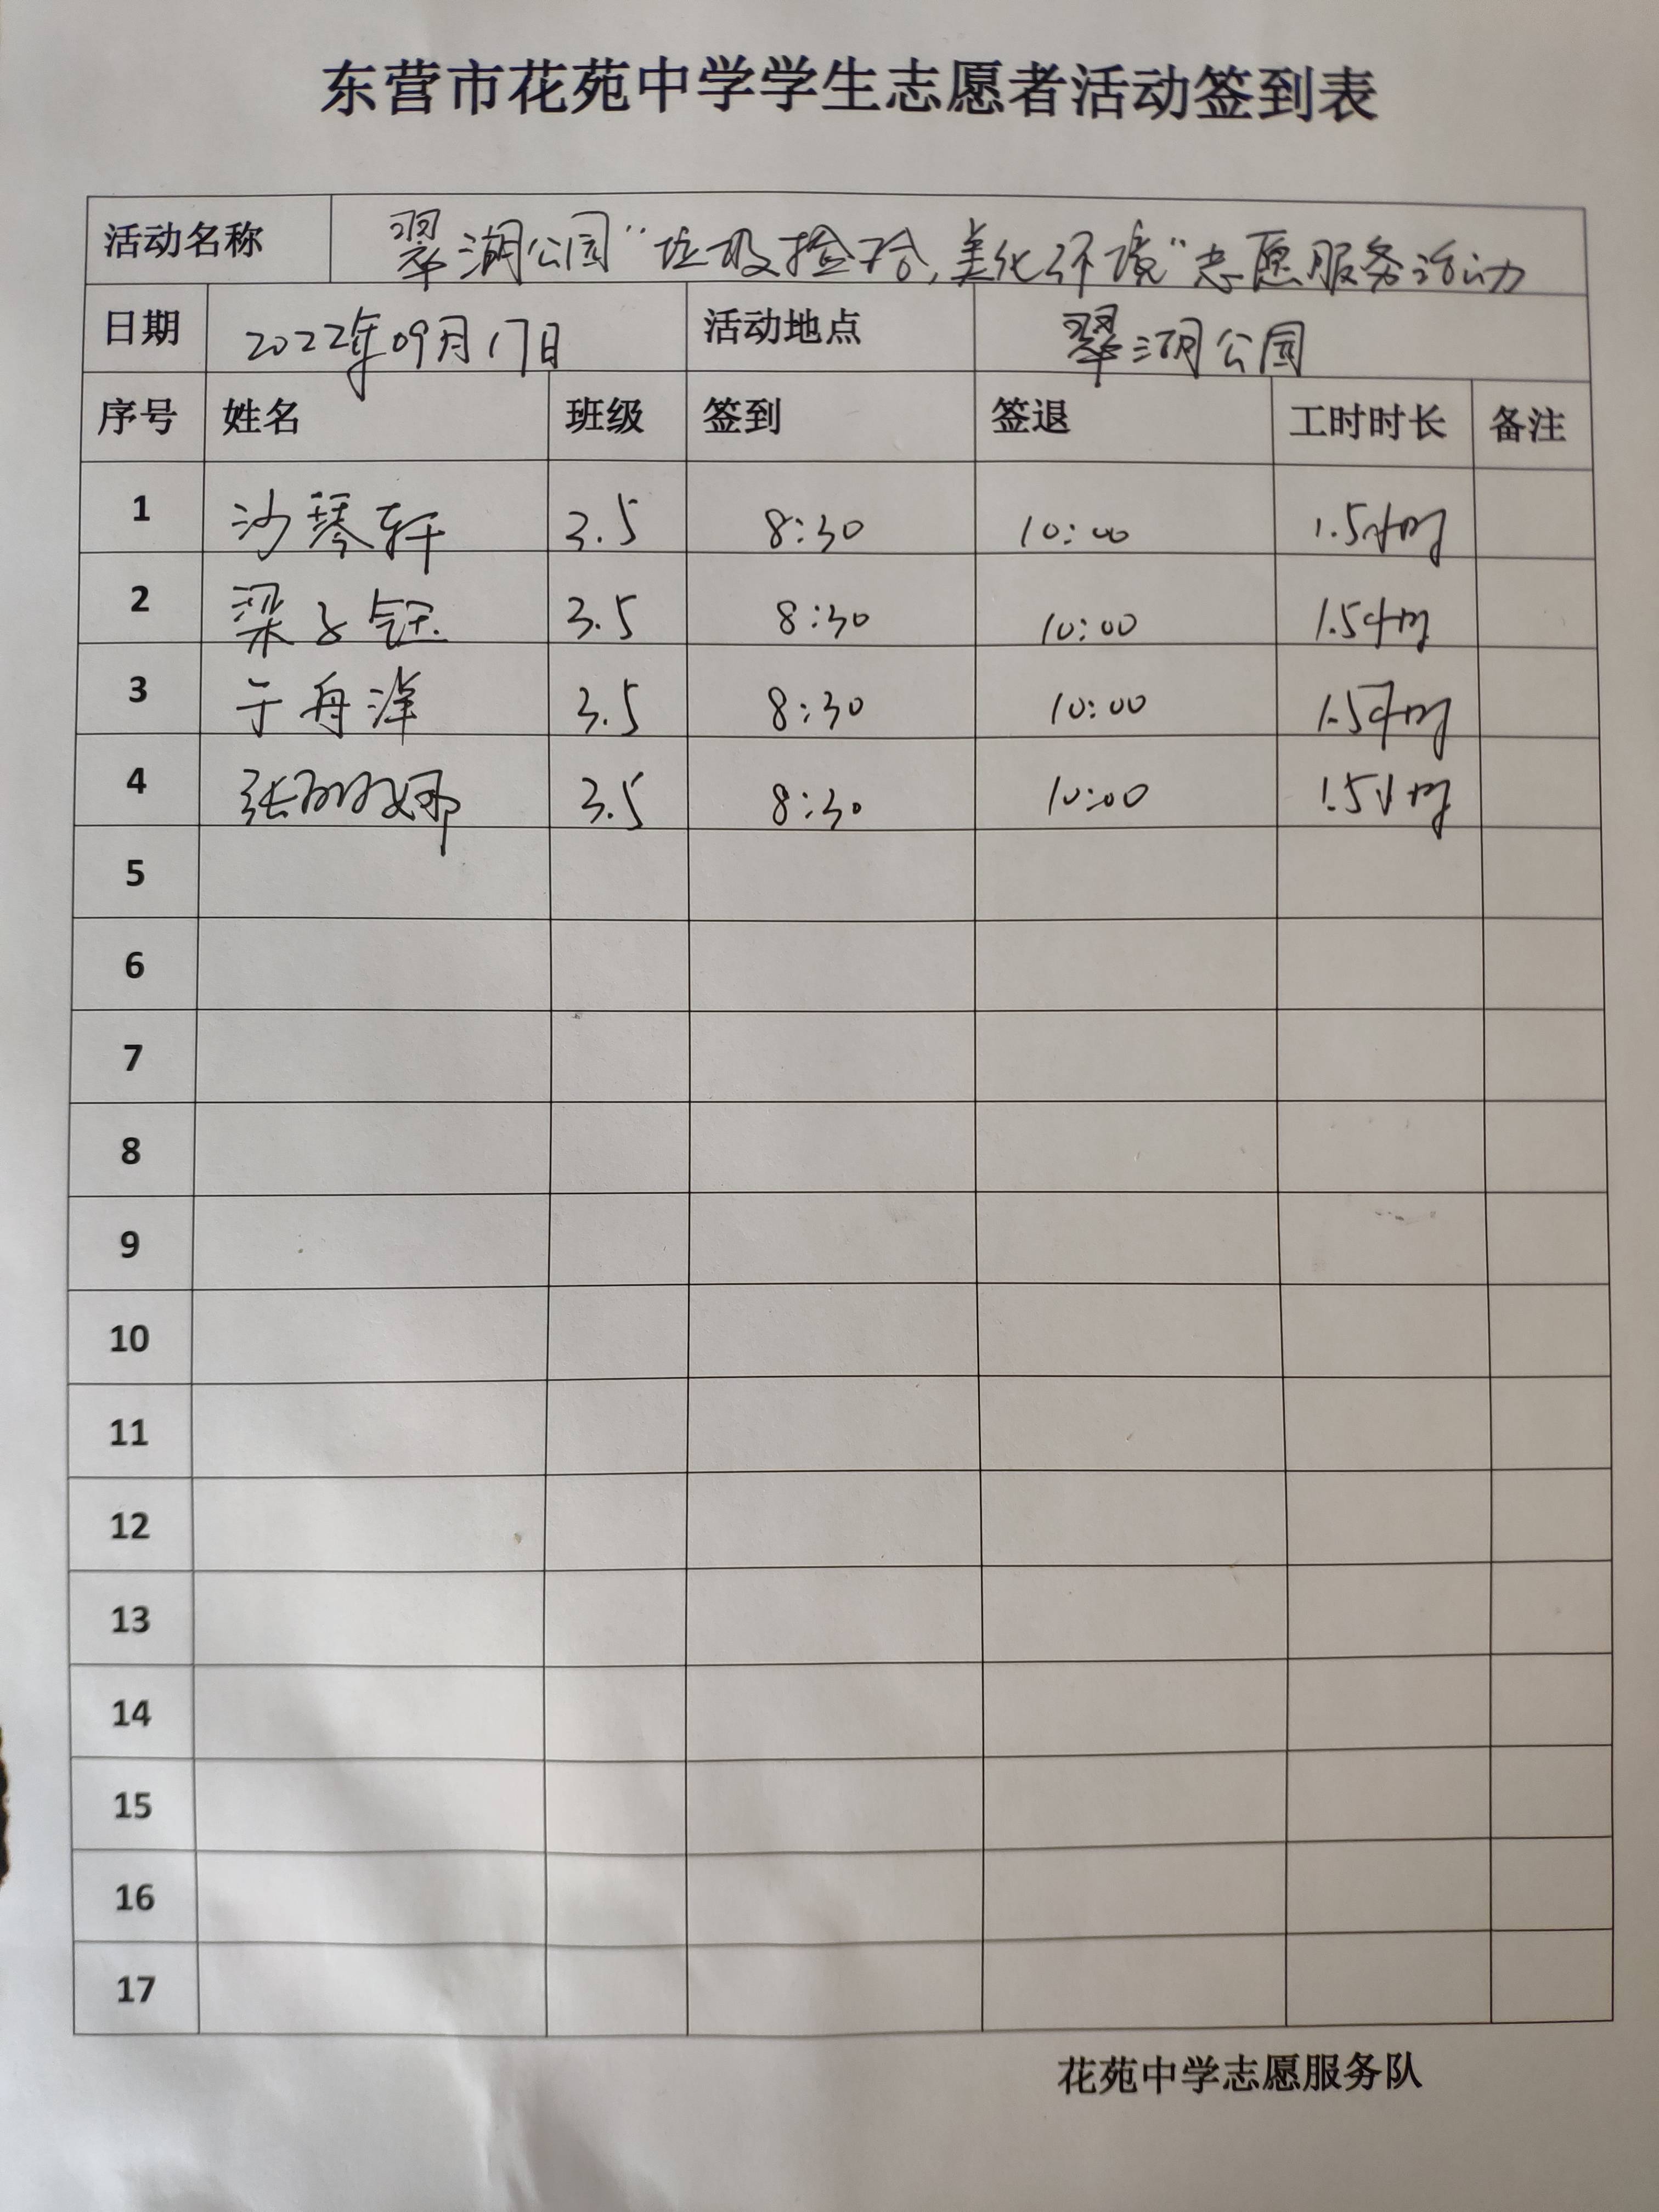 东营市花苑中学学生志愿者活动签到表
活动名称 翠湖公园“垃圾捡拾,美化环境”志愿服务活动
日期 2022年09月17日 活动地点 翠湖公园
序号 姓名 班级 签到 签退 工时时长 备注
1 沙琴轩 3.5 8:30 10:00 1.5小时
2 梁子钰 3.5 8:30 10:00 1.5小时
3 于舟洋 3.5 8:30 10:00 1.5小时
4 张娜 3.5 8:30 10:00 1.5小时
5
6
7
8
9
10
11
12
13
14
15
16
17
花苑中学志愿服务队